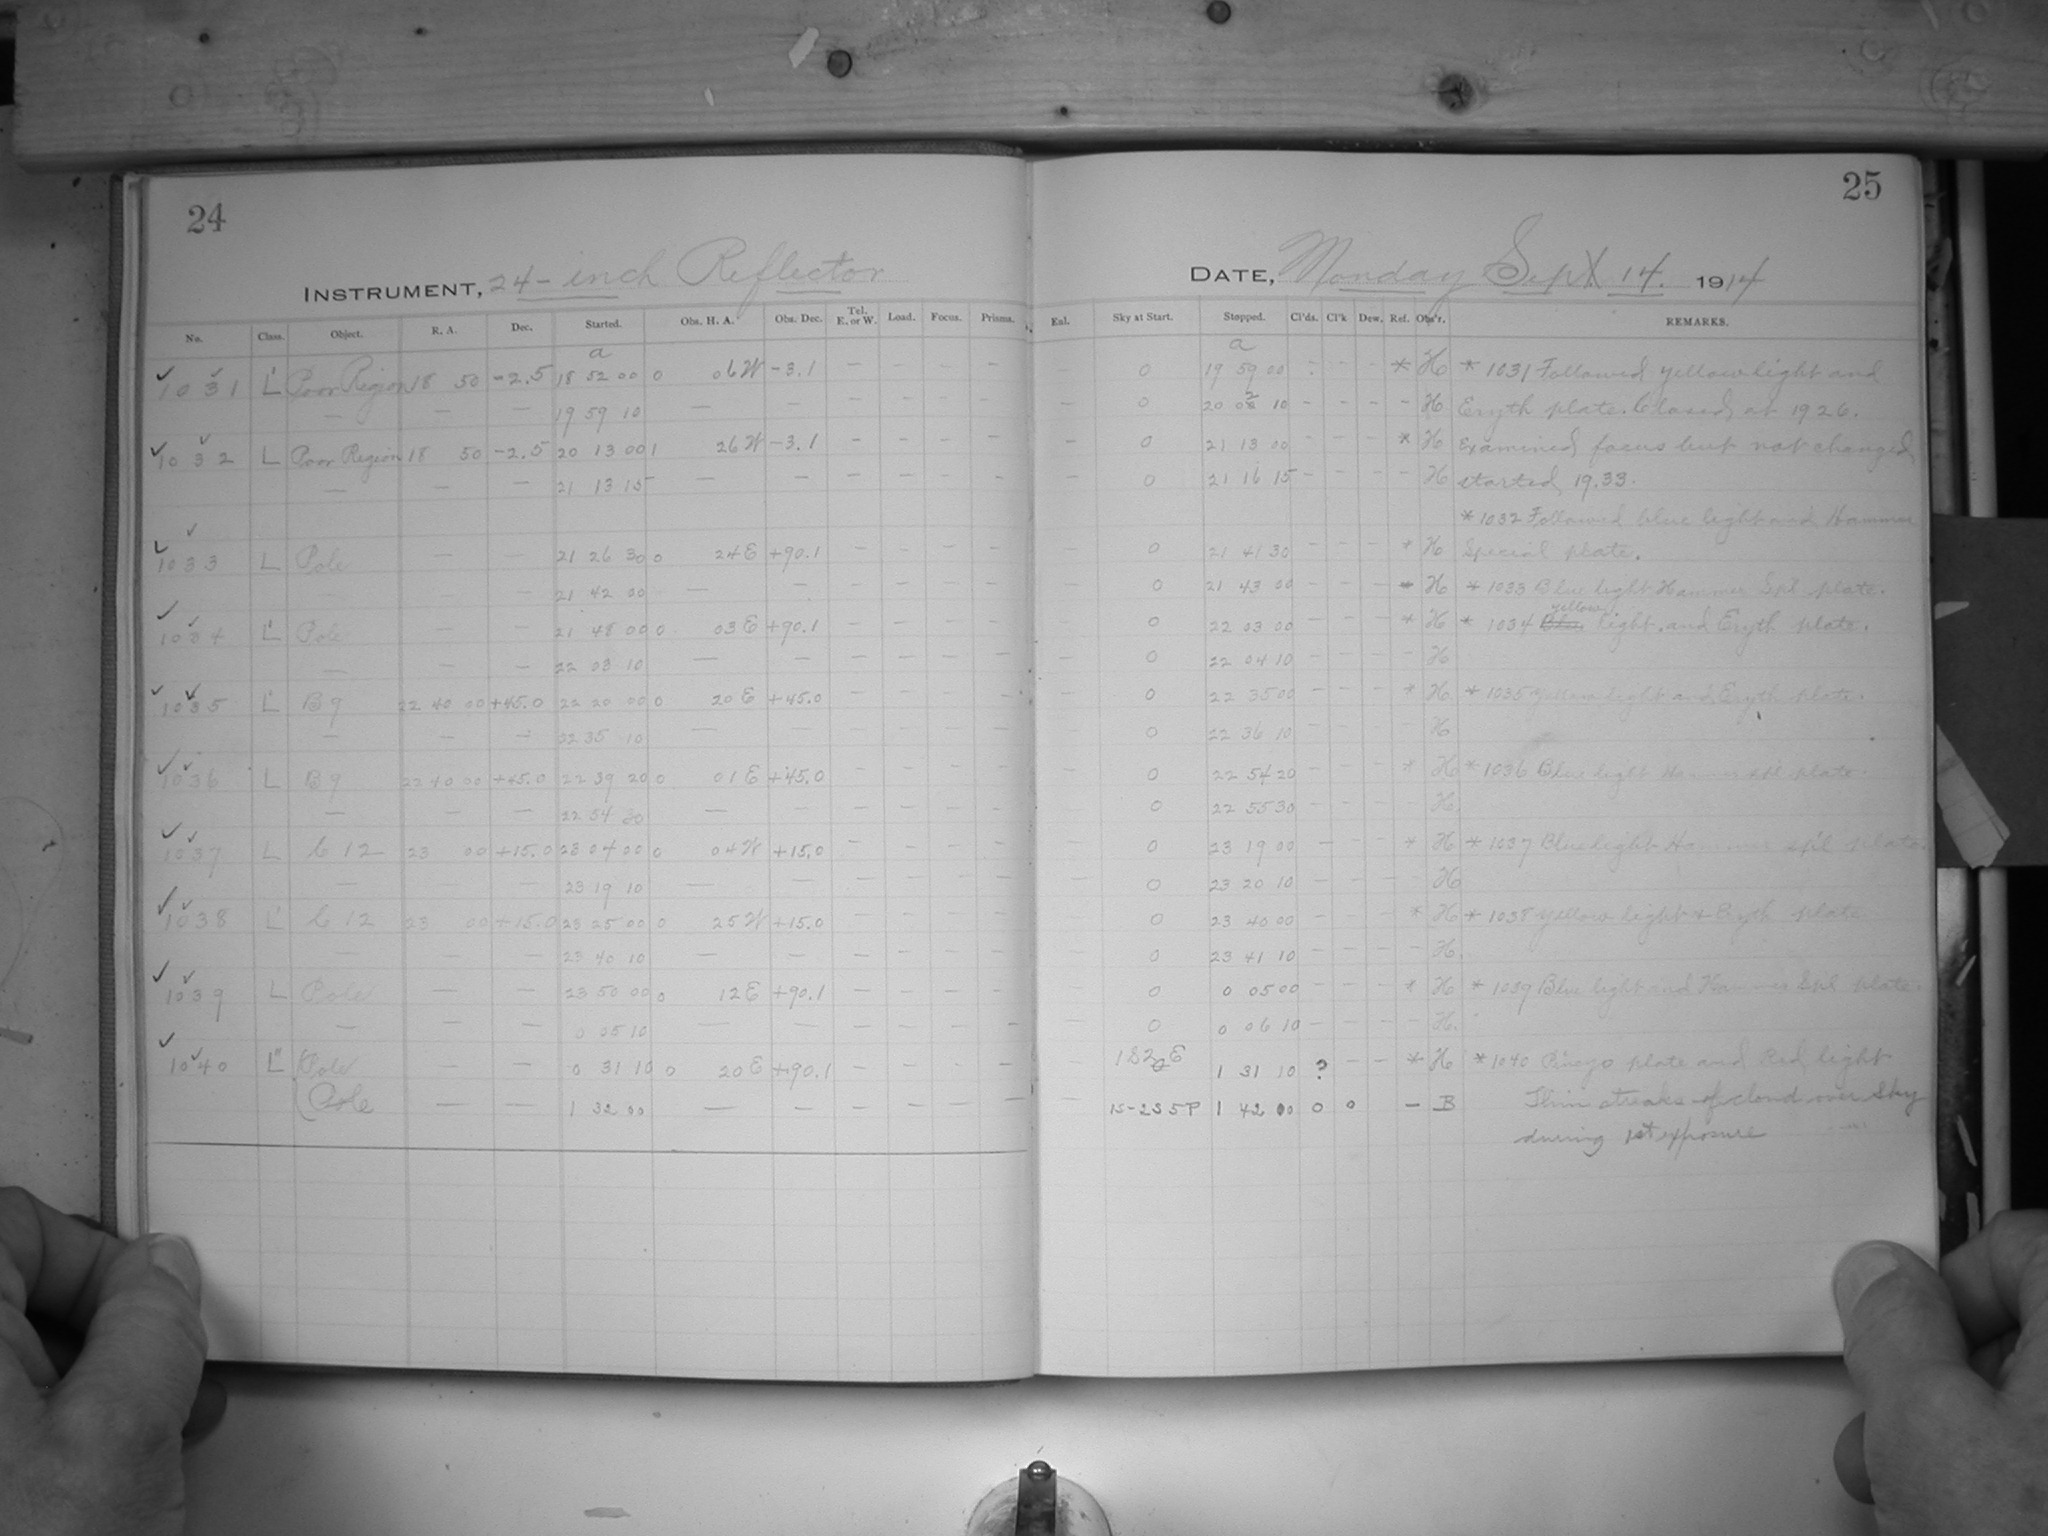 24
25
INSTRUMENT, 24-inch Reflector
DATE, Monday Sept 14. 1914
No. Class. Object. R. A. Dec. Started. Obs. H. A. Obs. Dec. Tel. E. or W. Load. Focus. Prisms. Enl. Sky at Start. Stopped. Cl'ds. Cl'k Dew. Ref. Obs'r. REMARKS.
a a
1031 L' Poor Region 18 50 -2.5 18 52 00 0 06 W -3.1 — — — — 0 19 59 00 - - * H * 1031 Followed yellow light and
— — — 19 59 10 — — — — — — — 0 20 02 10 - - - - H Eryth plate. Closed at 19 26.
1032 L Poor Region 18 50 -2.5 20 13 00 1 26 W -3.1 — — — — — 0 21 13 00 - - - * H Examined focus but not changed
— — — 21 13 15 — — — — — — — 0 21 16 15 - - - H started 19.33.
* 1032 Followed blue light and Hammer
1033 L Pole — — 21 26 30 0 24 E +90.1 — — — — — 0 21 41 30 - - - * H Special plate.
— — 21 42 00 — — — — — — — 0 21 43 00 - - - * H * 1033 Blue light Hammer Spl plate.
1034 L' Pole — — 21 48 00 0 03 E +90.1 — — — — — 0 22 03 00 - - - * H * 1034 yellow light and Eryth plate.
— — — 22 03 10 — — — — — — — 0 22 04 10 - - - - H
1035 L' B9 22 40 00 +45.0 22 20 00 0 20 E +45.0 — — — — — 0 22 35 00 - - - * H * 1035 Yellow light and Eryth plate.
— — — 22 35 10 — — — — — — — 0 22 36 10 - - - - H
1036 L B9 22 40 00 +45.0 22 39 20 0 01 E +45.0 — — — — — 0 22 54 20 - - - * H * 1036 Blue light Hammer spl plate.
— — — 22 54 30 — — — — — — — 0 22 55 30 - - - - H.
1037 L C 12 23 00 +15.0 23 04 00 0 04 W +15.0 — — — — — 0 23 19 00 - - - * H * 1037 Blue light Hammer sp'l plate.
— — — 23 19 10 — — — — — — — 0 23 20 10 - - - - H
1038 L' C 12 23 00 +15.0 23 25 00 0 25 W +15.0 — — — — — 0 23 40 00 - - - * H * 1038 Yellow light & Eryth plate
— — — 23 40 10 — — — — — — — 0 23 41 10 - - - - H.
1039 L Pole — — 23 50 00 0 12 E +90.1 — — — — — 0 0 05 00 - - - * H * 1039 Blue light and Hammer Spl plate.
— — — 0 05 10 — — — — — — — 0 0 06 10 - - - - H.
1040 L" Pole — — 0 31 10 0 20 E +90.1 — — — — — 1S2 E 1 31 10 ? - - * H * 1040 plate and Red light
Pole — — 1 32 00 — — — — — — — 1S-2S5P 1 42 00 0 0 - B Thin streaks of cloud over sky
during 1st exposure